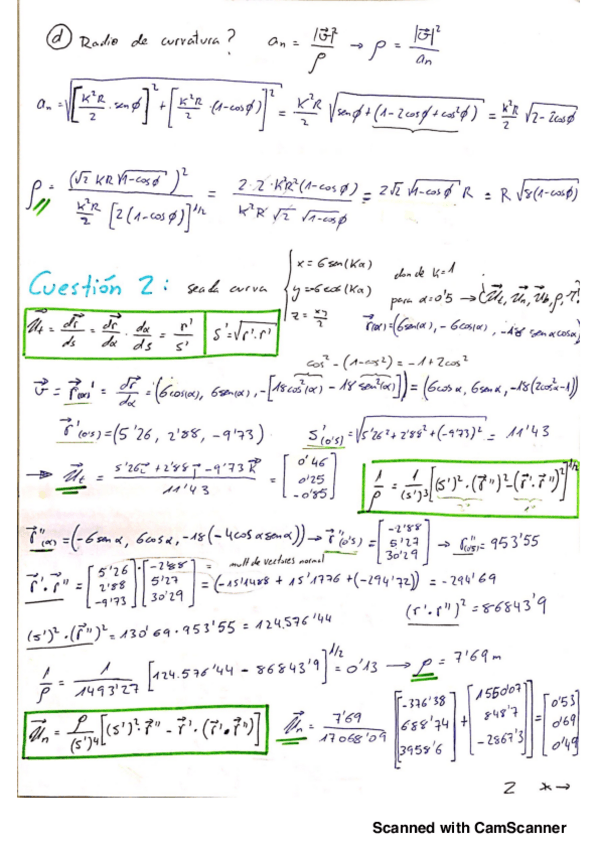 ⓓ Radio de curvatura? aₙ = |v⃗|²/ρ → ρ = |v⃗|²/aₙ
aₙ = √([K²R/2 · senϕ]² + [K²R/2 · (1-cosϕ)]²) = K²R/2 √(senϕ + (1-2cosϕ+cos²ϕ)) = K²R/2 √(2-2cosϕ)
ρ = (√2 KR√(1-cosϕ))² / (K²R/2 [2(1-cosϕ)]^1/2) = 2·2·K²R²(1-cosϕ) / (K²R √2 √(1-cosϕ)) = 2√2 √(1-cosϕ) R = R √(8(1-cosϕ))
Cuestión 2: sea la curva { x = 6sen(Kα) donde K=1
y=-6cos(Kα) para α=0'5 → (u⃗t, u⃗n, u⃗b, ρ, τ?
z = xy/2 r⃗(α)=(6sen(α), -6cos(α), -18 senα cosα)
u⃗t = dr⃗/ds = dr⃗/dα · dα/ds = r'/s' s' = √(r'·r')
cos² - (1-cos²) = -1+2cos²
v⃗ = r⃗(α)' = dr⃗/dα = (6cos(α), 6sen(α), -[18cos²(α) - 18sen²(α)]) = (6cosα, 6senα, -18(2cos²α-1))
r⃗'(0'5) = (5'26, 2'88, -9'73) s'(0'5) = √(5'26²+2'88²+(-9'73)²) = 11'43
→ u⃗t = (5'26i⃗ + 2'88j⃗ - 9'73k⃗)/11'43 = [0'46 0'25 -0'85] 1/ρ = 1/(s')³ [(s')²·(r⃗'')²-(r⃗'·r⃗'')²]^1/2
r⃗''(α) = (-6senα, 6cosα, -18(-4cosαsenα)) → r⃗''(0'5) = [-2'88 5'27 30'29] → r''(0'5)= 953'55
mult de vectores normal
r⃗'·r⃗'' = [5'26 2'88 -9'73]·[-2'88 5'27 30'29] = (-15'1488 + 15'1776 + (-294'72)) = -294'69
(s')²·(r⃗'')² = 130'69·953'55 = 124.576'44 (r'·r'')² = 86843'9
1/ρ = 1/1493'27 [124.576'44 - 86843'9]^1/2 = 0'13 → ρ = 7'69 m
u⃗n = ρ/(s')⁴ [(s')²·r⃗'' - r⃗'·(r⃗'·r⃗'')] u⃗n = 7'69/17068'09 [-376'38 688'74 3958'6] + [1550'07 848'7 -2867'3] = [0'53 0'69 0'49]
2 *→
Scanned with CamScanner